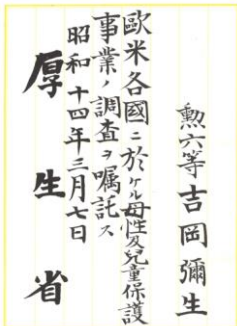 勲六等吉岡彌生
歐米各國ニ於ケル母性及兒童保護
事業ノ調査ヲ嘱託ス
昭和十四年三月七日
厚生省